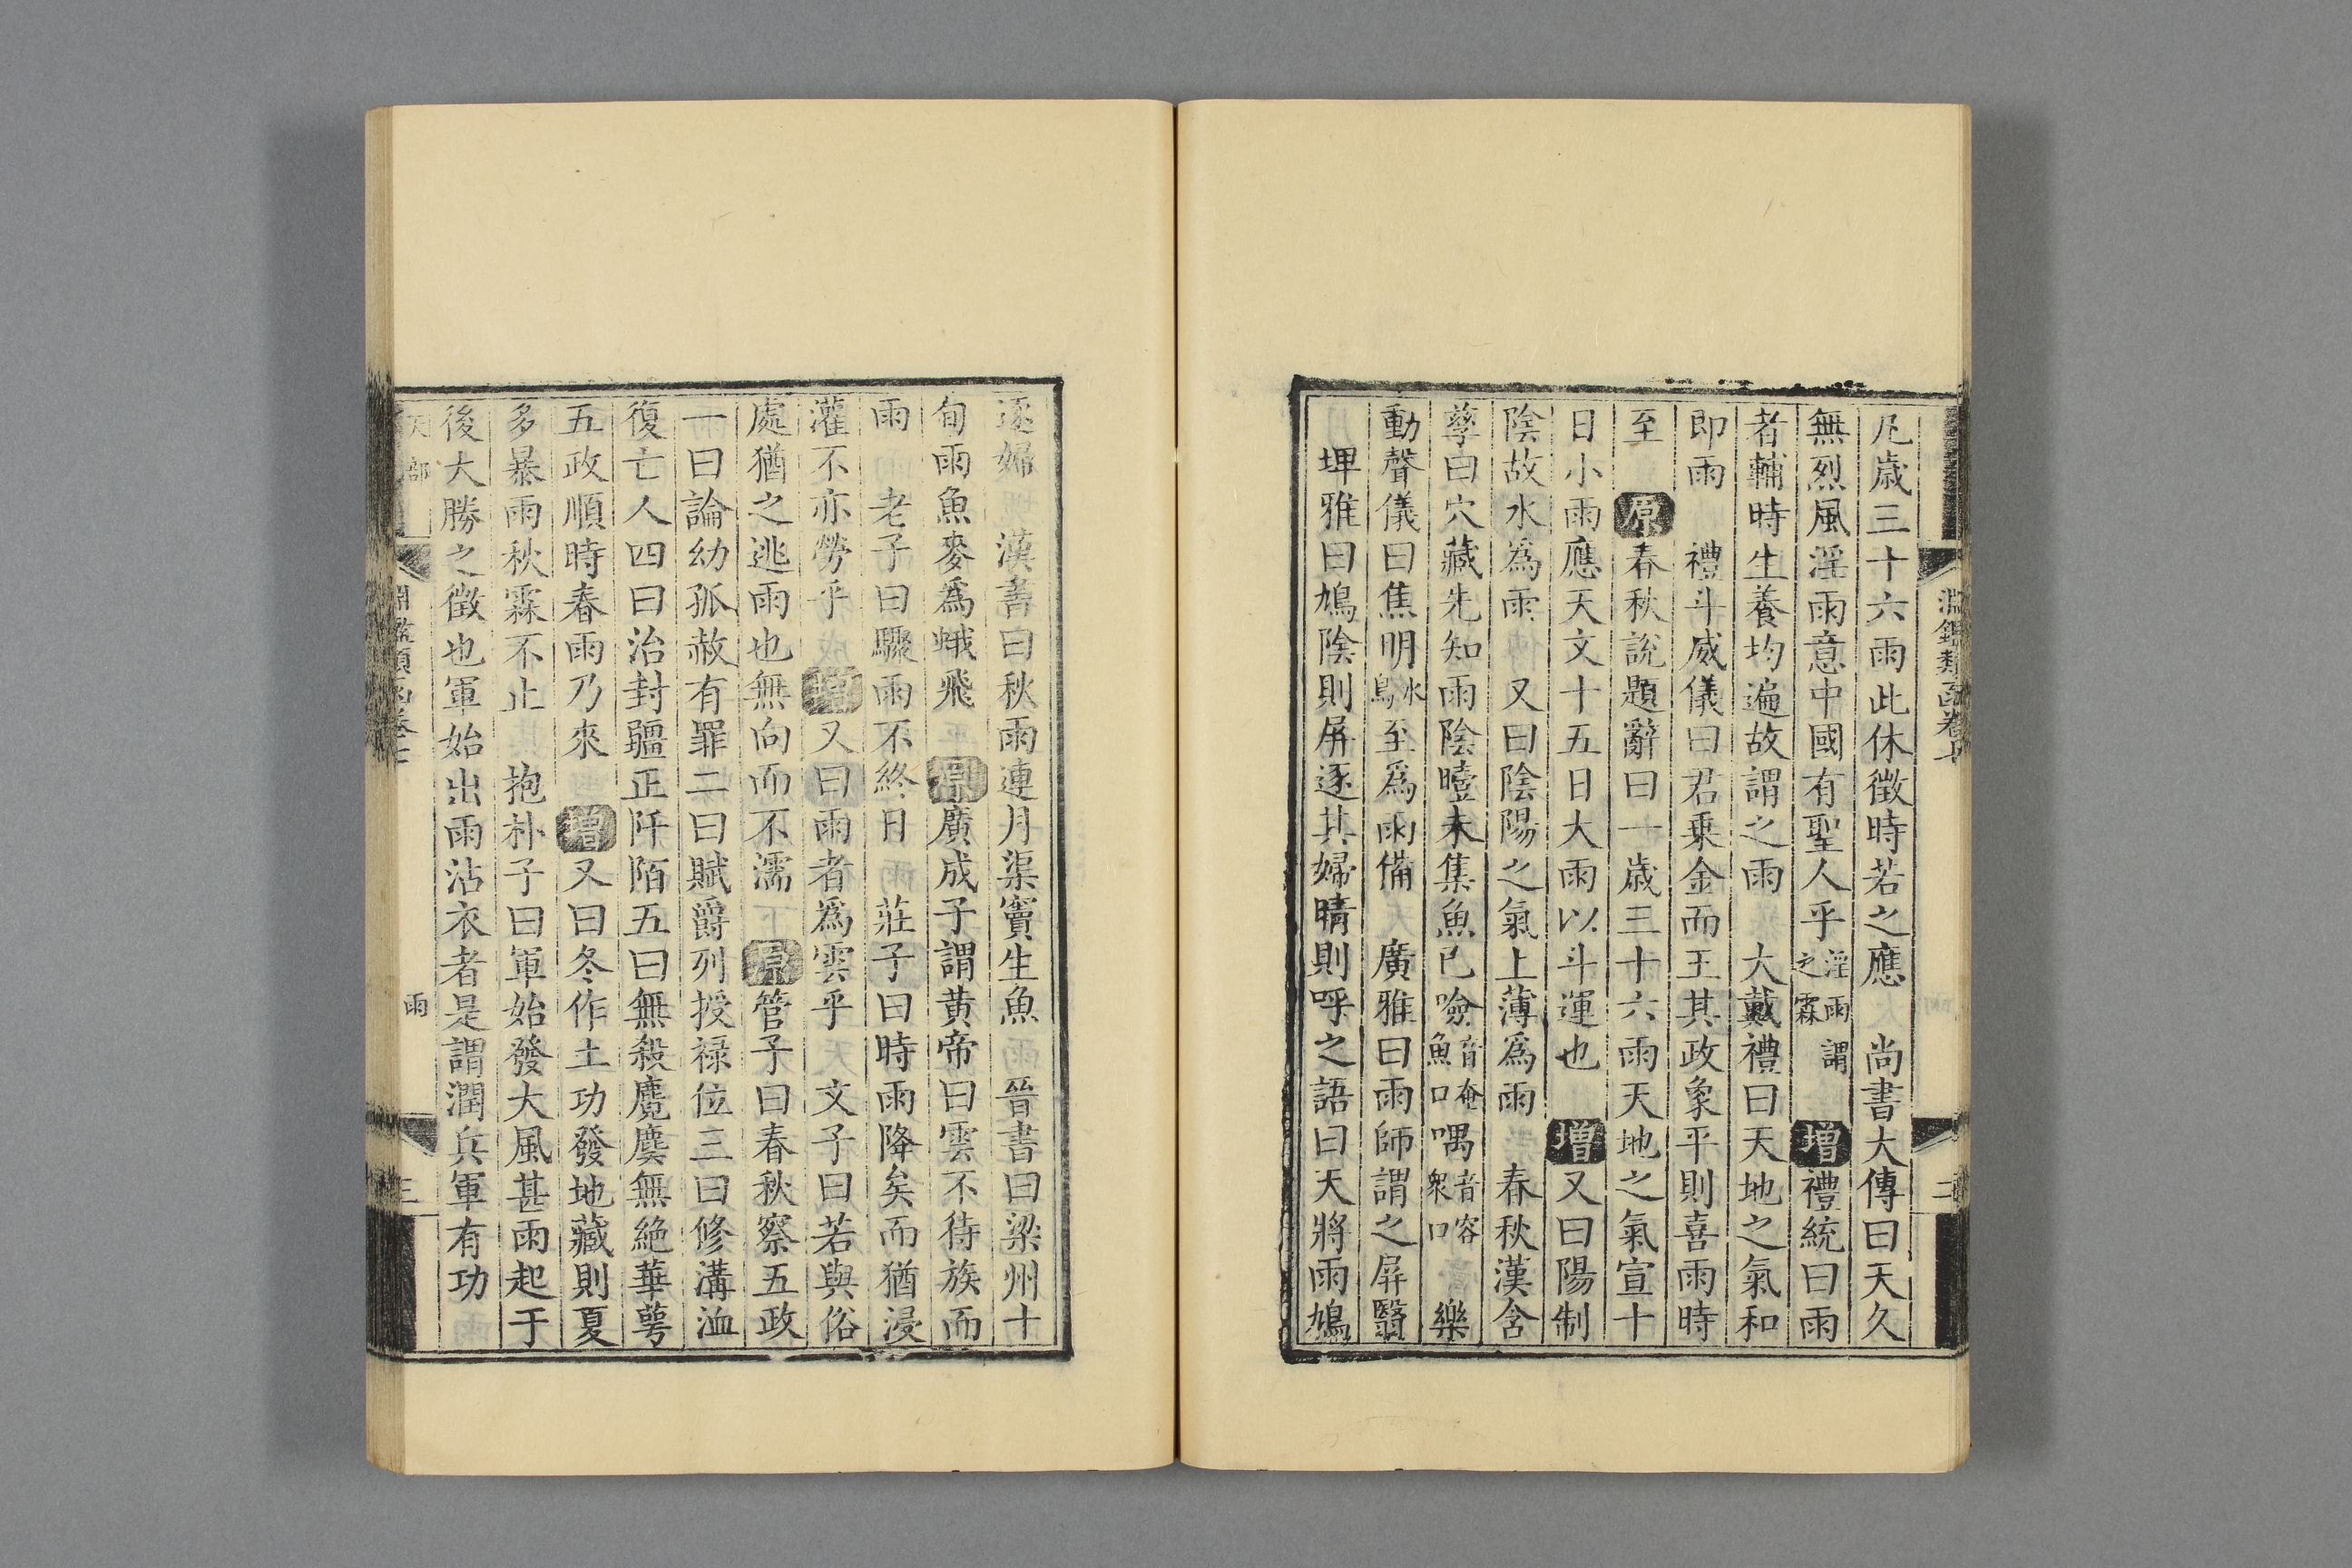 淵鑑類函卷七
二
凡歲三十六雨此休徵時若之應　尚書大傳曰天久
無烈風淫雨意中國有聖人乎淫雨謂之霖　增禮統曰雨
者輔時生養均遍故謂之雨　大戴禮曰天地之氣和
即雨　禮斗威儀曰君乗金而王其政象平則喜雨時
至　原春秋說題辭曰一歲三十六雨天地之氣宣十
日小雨應天文十五日大雨以斗運也　增又曰陽制
陰故水爲雨　又曰陰陽之氣上薄爲雨　春秋漢含
孳曰穴藏先知雨陰曀未集魚已噞音奄魚口喁音容衆口　樂
動聲儀曰焦明水鳥至爲雨備　廣雅曰雨師謂之屏翳
埤雅曰鳩陰則屏逐其婦晴則呼之語曰天將雨鳩
逐婦　漢書曰秋雨連月渠竇生魚　晉書曰梁州十
旬雨魚麥爲蛾飛　原廣成子謂黄帝曰雲不待族而
雨　老子曰驟雨不終日　莊子曰時雨降矣而猶浸
灌不亦勞乎　增又曰雨者爲雲乎　文子曰若與俗
處猶之逃雨也無向而不濡　原管子曰春秋察五政
一曰論幼孤赦有罪二曰賦爵列授禄位三曰修溝洫
復亡人四曰治封疆正阡陌五曰無殺麑麌無絶華萼
五政順時春雨乃來　增又曰冬作土功發地藏則夏
多暴雨秋霖不止　抱朴子曰軍始發大風甚雨起于
後大勝之徵也軍始出雨沾衣者是謂潤兵軍有功
天部
淵鑑類函卷七
雨
三